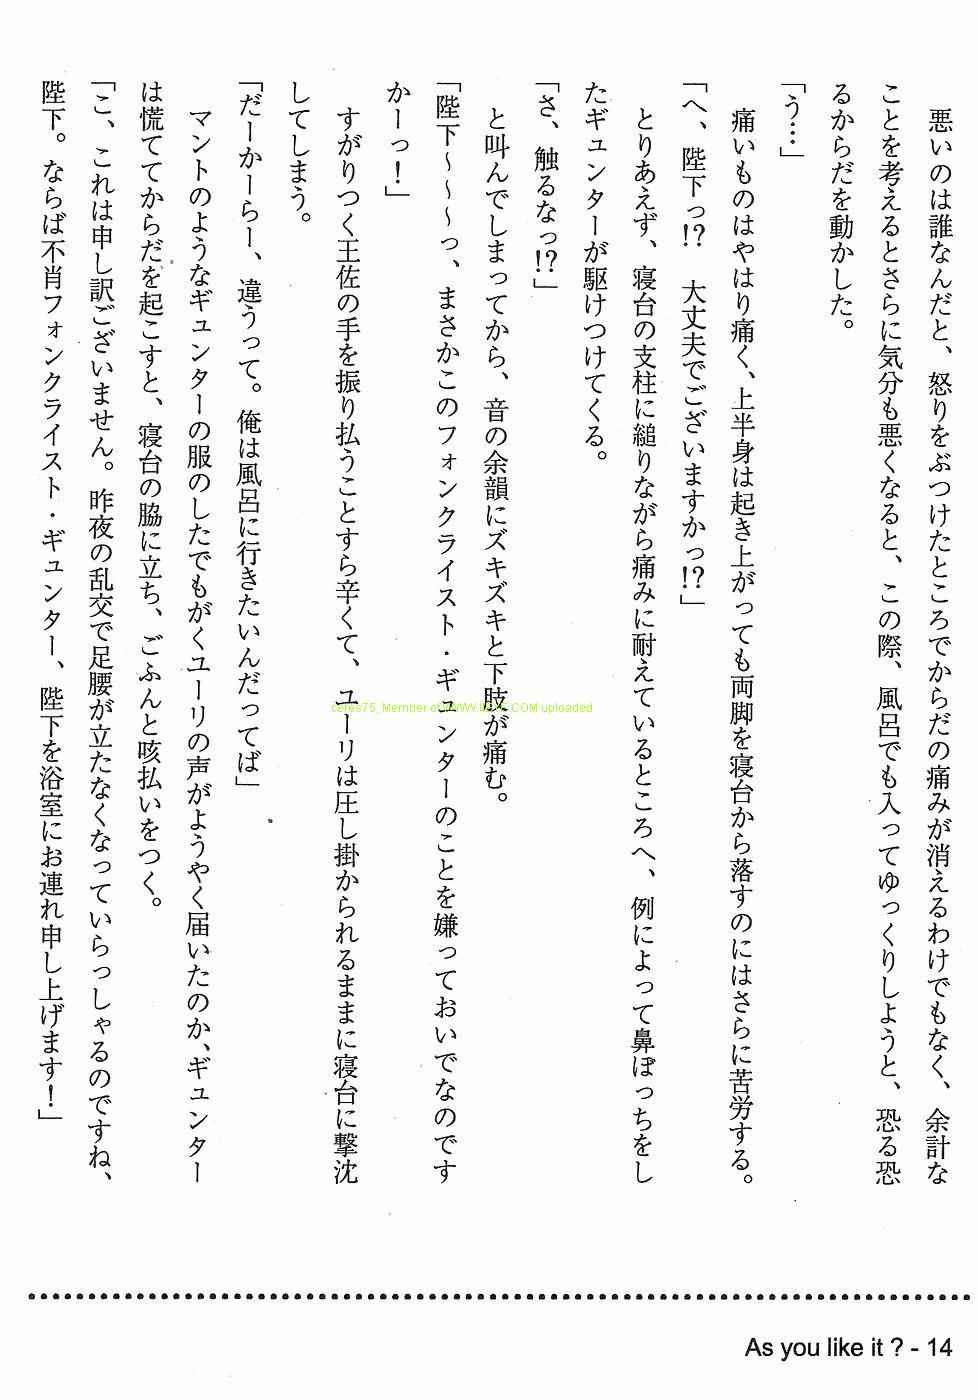 悪いのは誰なんだと、怒りをぶつけたところでからだの痛みが消えるわけでもなく、余計な
ことを考えるとさらに気分も悪くなると、この際、風呂でも入ってゆっくりしようと、恐る恐
るからだを動かした。
「う…」
痛いものはやはり痛く、上半身は起き上がっても両脚を寝台から落すのにはさらに苦労する。
「へ、陛下っ!?　大丈夫でございますかっ!?」
とりあえず、寝台の支柱に縋りながら痛みに耐えているところへ、例によって鼻ぽっちをし
たギュンターが駆けつけてくる。
「さ、触るなっ!?」
と叫んでしまってから、音の余韻にズキズキと下肢が痛む。
「陛下～～～っ、まさかこのフォンクライスト・ギュンターのことを嫌っておいでなのです
かーっ！」
すがりつく王佐の手を振り払うことすら辛くて、ユーリは圧し掛かられるままに寝台に撃沈
してしまう。
「だーかーらー、違うって。俺は風呂に行きたいんだってば」
マントのようなギュンターの服のしたでもがくユーリの声がようやく届いたのか、ギュンター
は慌ててからだを起こすと、寝台の脇に立ち、ごふんと咳払いをつく。
「こ、これは申し訳ございません。昨夜の乱交で足腰が立たなくなっていらっしゃるのですね、
陛下。ならば不肖フォンクライスト・ギュンター、陛下を浴室にお連れ申し上げます！」
ceres75_Member of uploaded
As you like it ? - 14